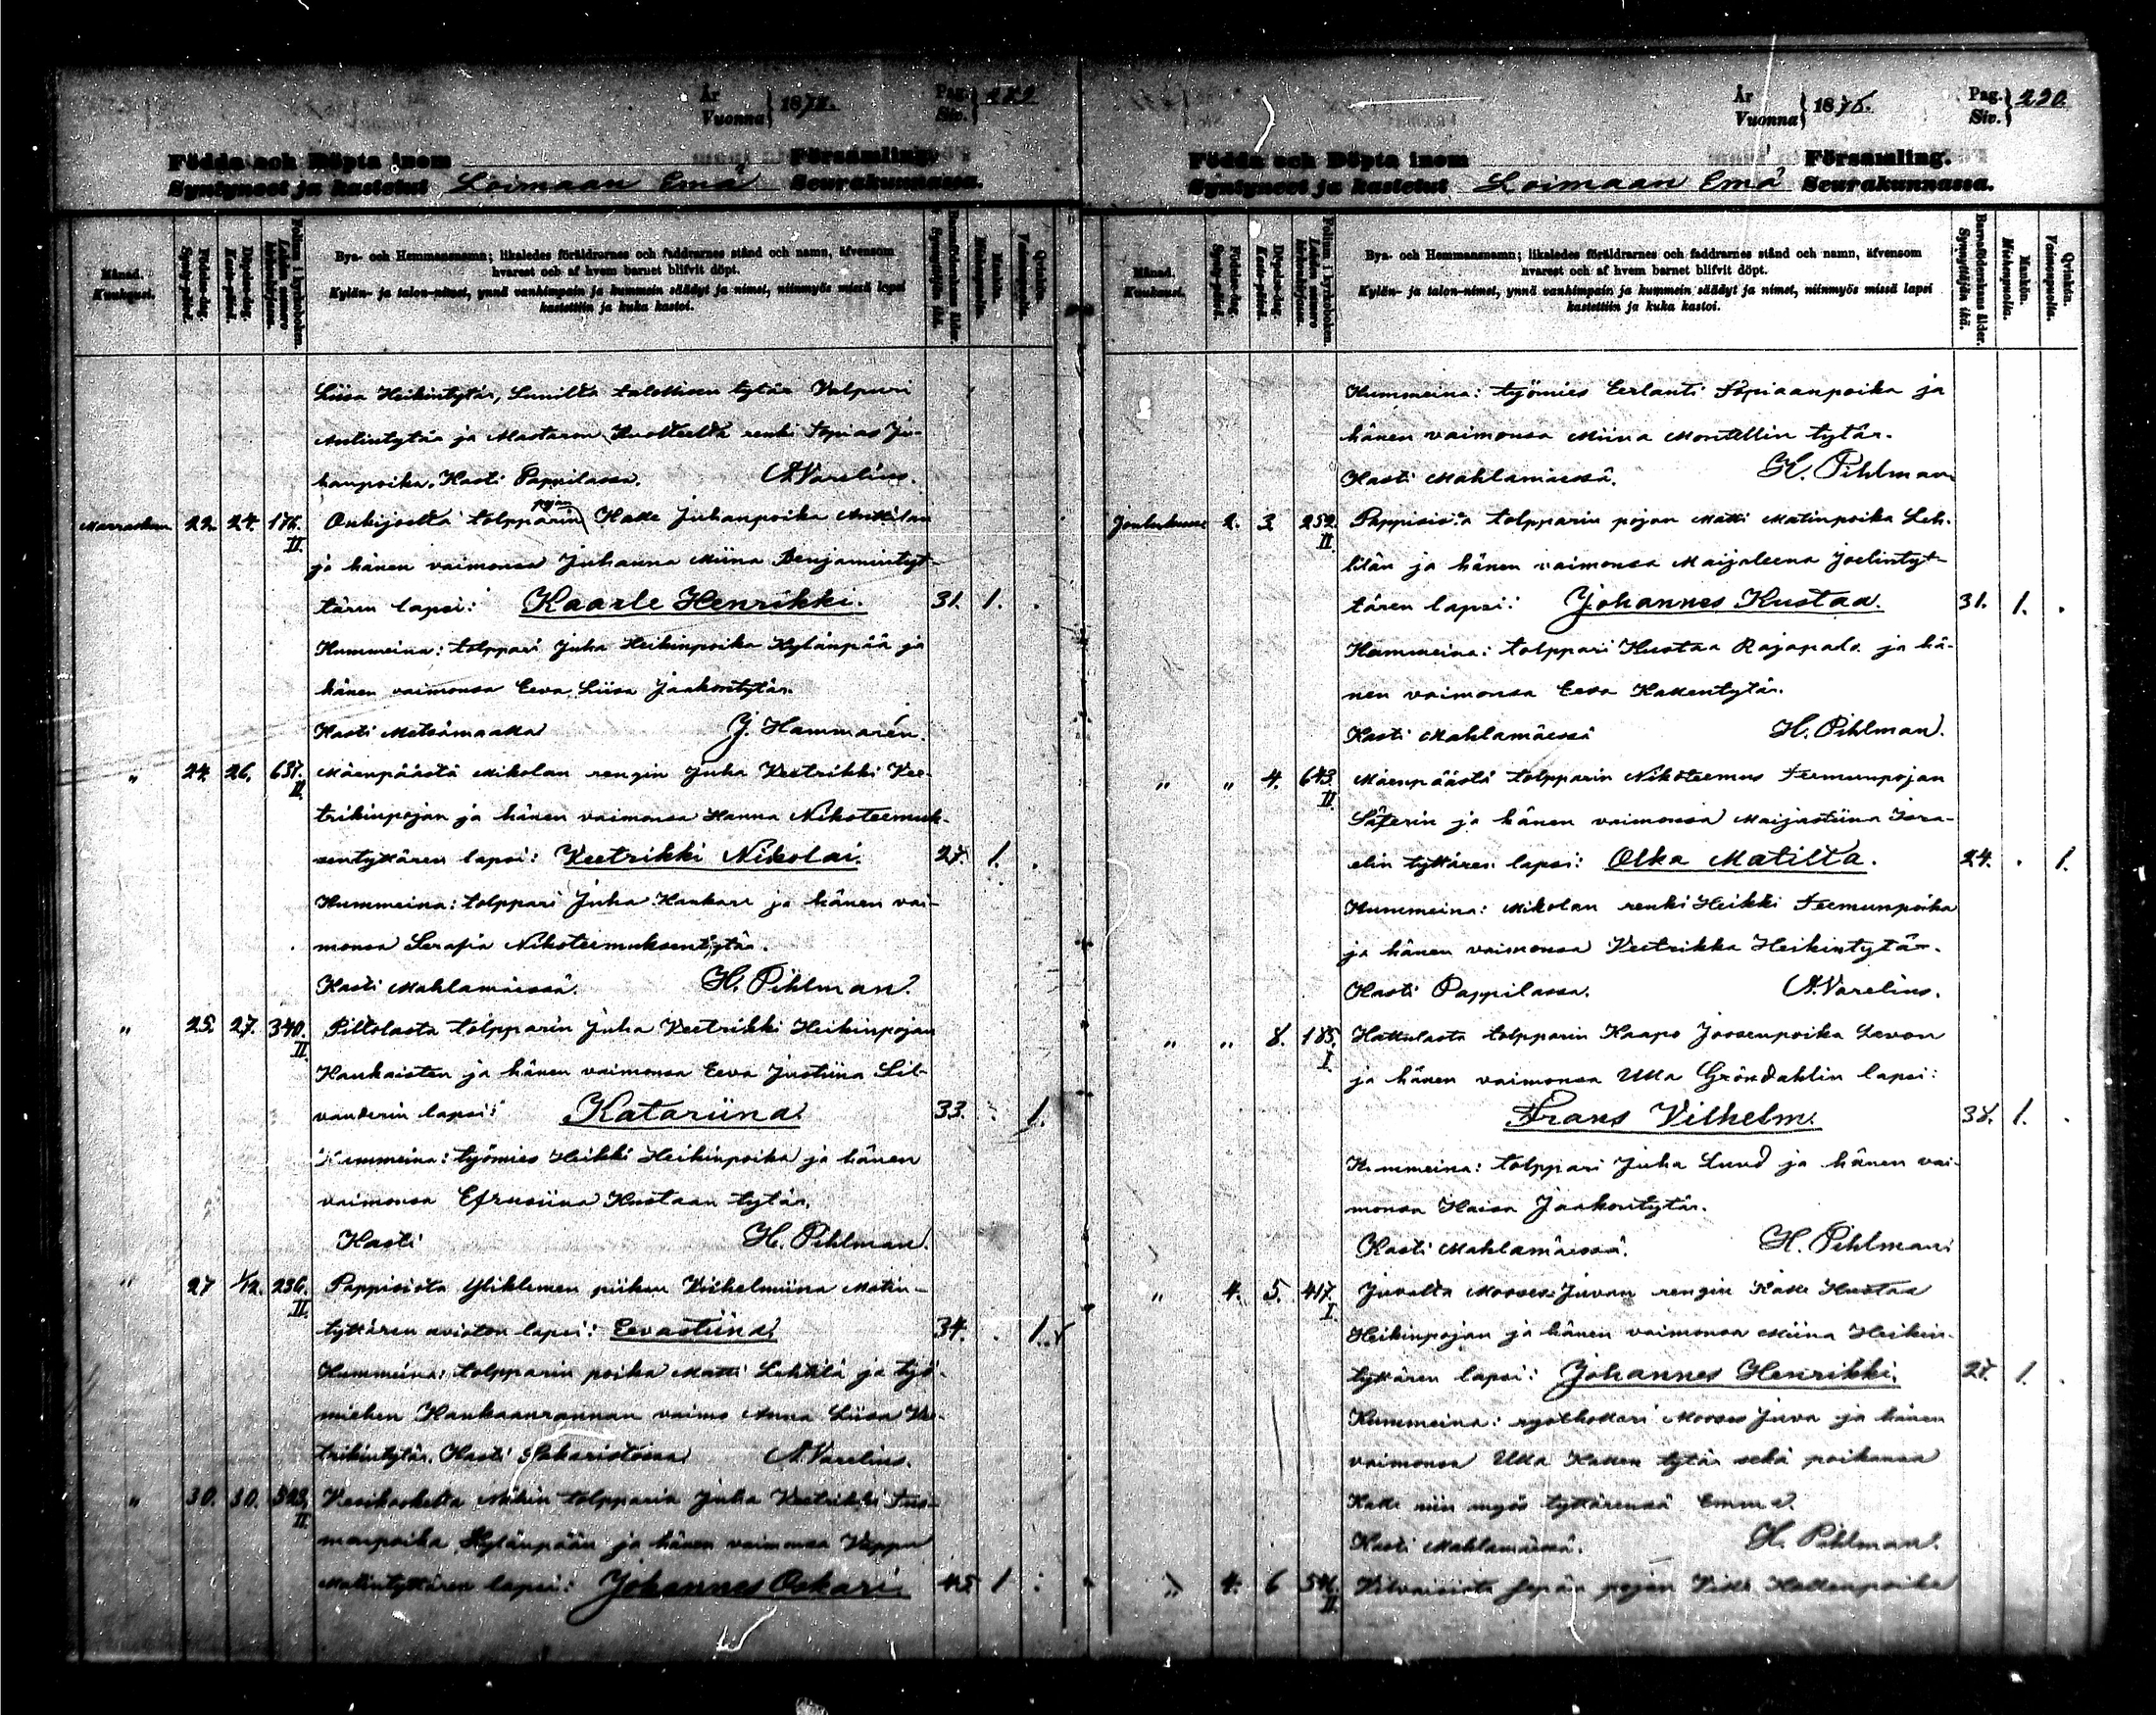 År
Vuonna } 187
Pag.
Siv. }
Födda och Döpta inom Församling.
Syntyneet ja kastetut Loimaan Emä Seurakunnassa.
Månad.
Kuukausi.
Födelse-dag.
Synty-päivä.
Döpelse-dag.
Kaste-päivä.
Folium i kyrkoboken.
Lehden numero kirkonkirjassa.
Bya- och Hemmansnamn; likaledes föräldrarnes och faddrarnes stånd och namn, äfvensom
hvarest och af hvem barnet blifvit döpt.
Kylän- ja talon-nimet, ynnä vanhimpain ja kummein säädyt ja nimet, niinmyös missä lapsi
kastettiin ja kuka kastoi.
Barnaföderskans ålder.
Synnyttäjän ikä.
Mankön.
Miehenpuolia.
Qvinkön.
Vaimonpuolia.
Liisa Heikintytär, talollisen tytär Valpuri
Antintytär ja renki Topias Ju-
hanpoika. Kasti Pappilassa. A Varelius.
Marraskuu 22. 24. 176. II. Onkijoelta tolpparin pojan Kalle Juhanpoika Anttilan
ja hänen vaimonsa Juhanna Miina Benjamintyt-
tären lapsi: Kaarle Henrikki. 31. 1. .
Kummeina: tolppari Juha Heikinpoika Kylänpää ja
hänen vaimonsa Eeva Liisa Jaakontytär.
Kasti Metsämaalla J. Hammarén.
" 24. 26. 637. II. Mäenpäästä Mikolan rengin Juha Veetrikki Vee-
trikinpojan ja hänen vaimonsa Hanna Nikoteemuk-
sentyttären lapsi: Veetrikki Nikolai. 27. 1. .
Kummeina: tolppari Juha Kankare ja hänen vai-
monsa Serafia Nikoteemuksentytär.
Kasti Mahlamäessä. H. Pihlman.
" 25. 27. 340. II. Piltolasta tolpparin Juha Veetrikki Heikinpojan
Haukaisten ja hänen vaimonsa Eeva Justiina Sil-
vanderin lapsi: Katariina. 33. . 1.
Kummeina: työmies Heikki Heikinpoika ja hänen
vaimonsa Efrusiina Kustaan tytär.
Kasti H. Pihlman.
" 27 1/12. 236. II. Pappisista Yliklemen piikan Vilhelmiina Matin-
tyttären avioton lapsi: Eevastiina. 34. . 1.
Kummeina: tolpparin poika Matti Lehtilä ja työ-
miehen Haukaanrannan vaimo Anna Liisa Vee-
trikintytär. Kasti Sakaristossa A. Varelius.
" 30. 30. II. Vesikoskelta tolpparin Juha Veetrikki Tuo-
maanpoika Kylänpään ja hänen vaimonsa Vappu
Matintyttären lapsi: Johannes Oskari. 45 1 .
År
Vuonna } 1875.
Pag.
Siv. } 290.
Födda och Döpta inom Församling.
Syntyneet ja kastetut Loimaan Emä Seurakunnassa.
Månad.
Kuukausi.
Födelse-dag.
Synty-päivä.
Döpelse-dag.
Kaste-päivä.
Folium i kyrkoboken.
Lehden numero kirkonkirjassa.
Bya- och Hemmansnamn; likaledes föräldrarnes och faddrarnes stånd och namn, äfvensom
hvarest och af hvem barnet blifvit döpt.
Kylän- ja talon-nimet, ynnä vanhimpain ja kummein säädyt ja nimet, niinmyös missä lapsi
kastettiin ja kuka kastoi.
Barnaföderskans ålder.
Synnyttäjän ikä.
Mankön.
Miehenpuolia.
Qvinkön.
Vaimonpuolia.
Kummeina: työmies Eerlanti Topiaanpoika ja
hänen vaimonsa Miina Montellin tytär.
Kasti Mahlamäessä. H. Pihlman
Joulukuu 2. 3 252. II. Pappisista tolpparin pojan Matti Matinpoika Leh-
tilän ja hänen vaimonsa Maijaleena Joelintyt-
tären lapsi: Johannes Kustaa. 31. 1. .
Kummeina: tolppari Kustaa Rajapalo ja hä-
nen vaimonsa Eeva Kallentytär.
Kasti Mahlamäessä H. Pihlman.
" " 4. 643. II. Mäenpäästä tolpparin Nikoteemus Teemunpojan
Säterin ja hänen vaimonsa Maijastiina Isra-
elin tyttären lapsi: Olka Matilta. 24. . 1.
Kummeina: Mikolan renki Heikki Teemunpoika
ja hänen vaimonsa Veetrikka Heikintytär.
Kasti Pappilassa. A. Varelius.
" " 8. 185. I Hattulasta tolpparin Kaapo Joosenpoika Levon
ja hänen vaimonsa Ulla Gröndahlin lapsi:
Frans Vilhelm. 38. 1. .
Kummeina: tolppari Juha Lund ja hänen vai-
monsa Kaisa Jaakontytär.
Kasti Mahlamäessä. H. Pihlman
" 4. 5. 417. I Juvalta Mooses Juvan rengin Kalle Kustaa
Heikinpojan ja hänen vaimonsa Miina Heikin-
tyttären lapsi: Johannes Henrikki. 27. 1. .
Kummeina: Mooses Juva ja hänen
vaimonsa Ulla Kallen tytär sekä poikansa
Kalle niin myös tyttärensä Emma.
Kasti Mahlamäessä. H. Pihlman.
" 4. 6 II. pojan Kallenpoika